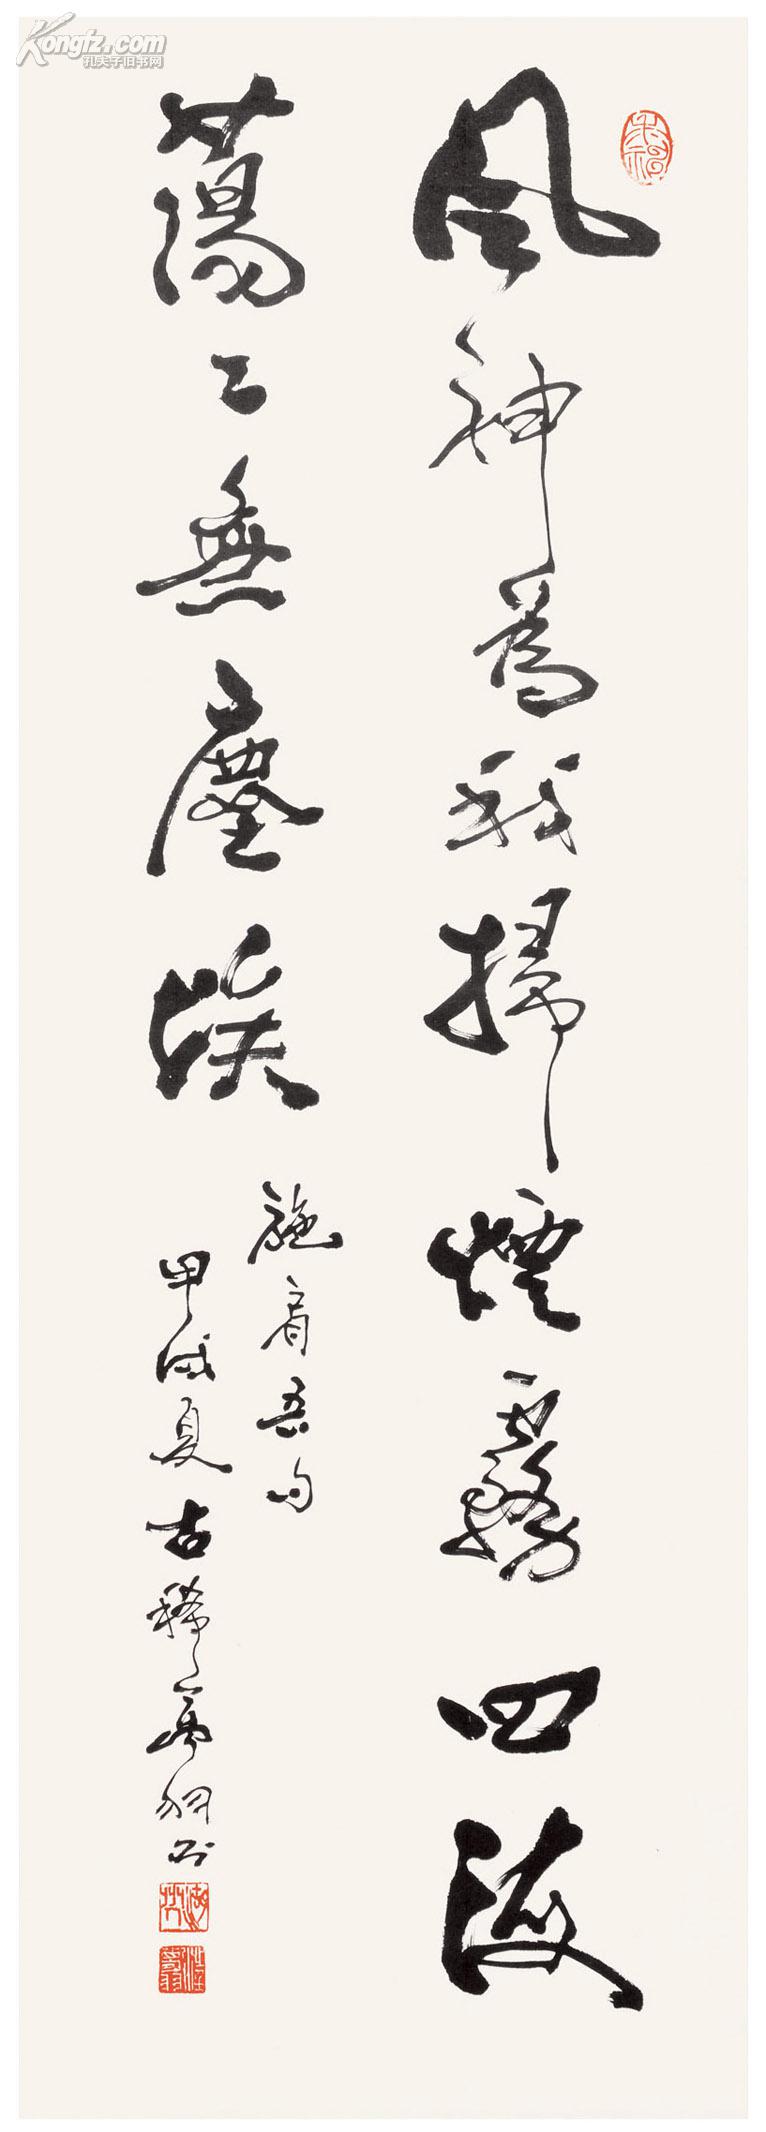 Kongfz.com
孔夫子旧书网
風神為我掃煙霧四海
蕩々無塵埃
施肩吾句
甲戌夏古稀